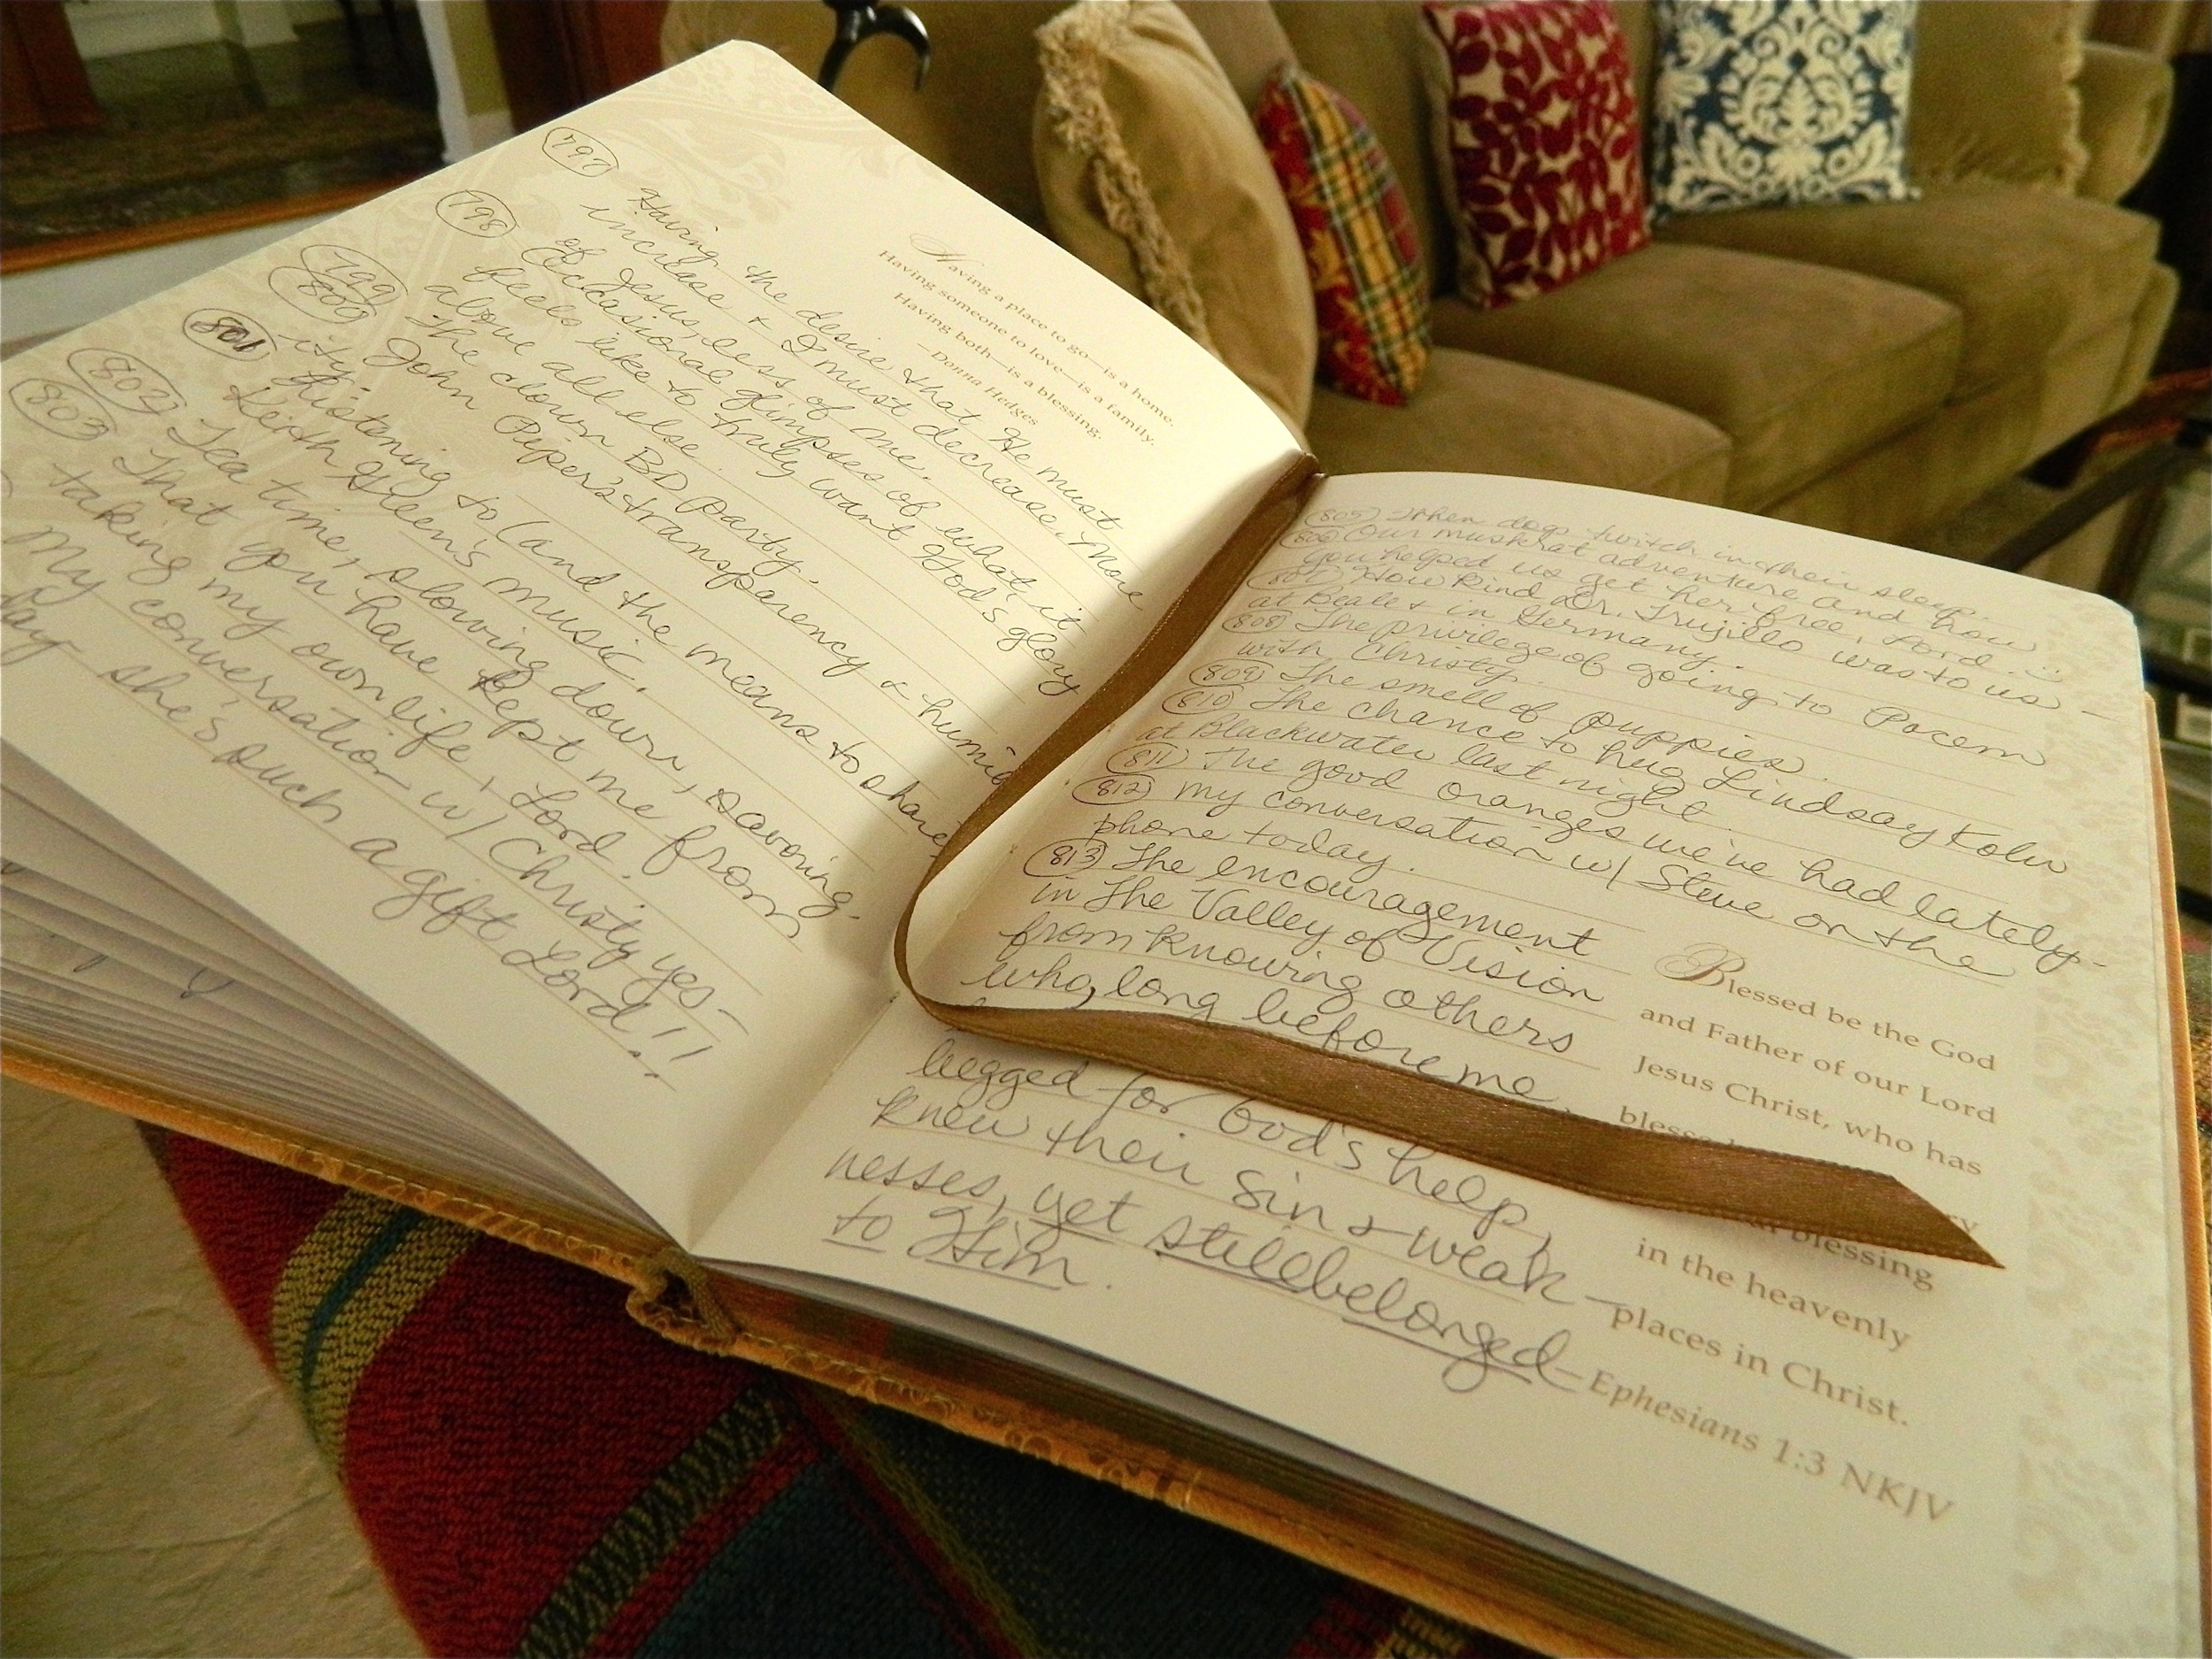 Having a place to go—is a home.
Having someone to love—is a family.
Having both—is a blessing.
—Donna Hedges
797 Having the desire that He must
increase & I must decrease. More
of Jesus, less of me.
798 Occasional glimpses of what it
feels like to truly want God's glory
above all else.
799 The clown BD party.
800 John Piper's transparency & humil
ity.
801 Listening to (and the means to share)
Keith Green's music.
802 Tea time, slowing down, savoring.
803 That you have kept me from
taking my own life, Lord.
My conversation w/ Christy yes-
day - she's such a gift Lord!!
805 When dogs twitch in their sleep.
806 Our muskrat adventure and how
you helped us get her free, Lord
807 How kind Dr. Trujillo was to us -
at Beale & in Germany.
808 The privilege of going to Pacem
with Christy.
809 The smell of puppies.
810 The chance to hug Lindsay Kolu
at Blackwater last night.
811 The good oranges we've had lately.
812 My conversation w/ Steve on the
phone today.
813 The encouragement
in The Valley of Vision
from knowing others
who, long before me
begged for God's help,
knew their sin & weak-
nesses, yet still belonged
to Him.
Blessed be the God
and Father of our Lord
Jesus Christ, who has
blessing
in the heavenly
places in Christ.
—Ephesians 1:3 NKJV